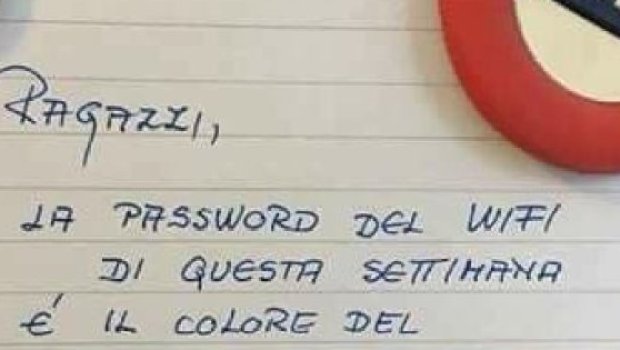 RAGAZZI,
LA PASSWORD DEL WIFI
DI QUESTA SETTIMANA
É IL COLORE DEL